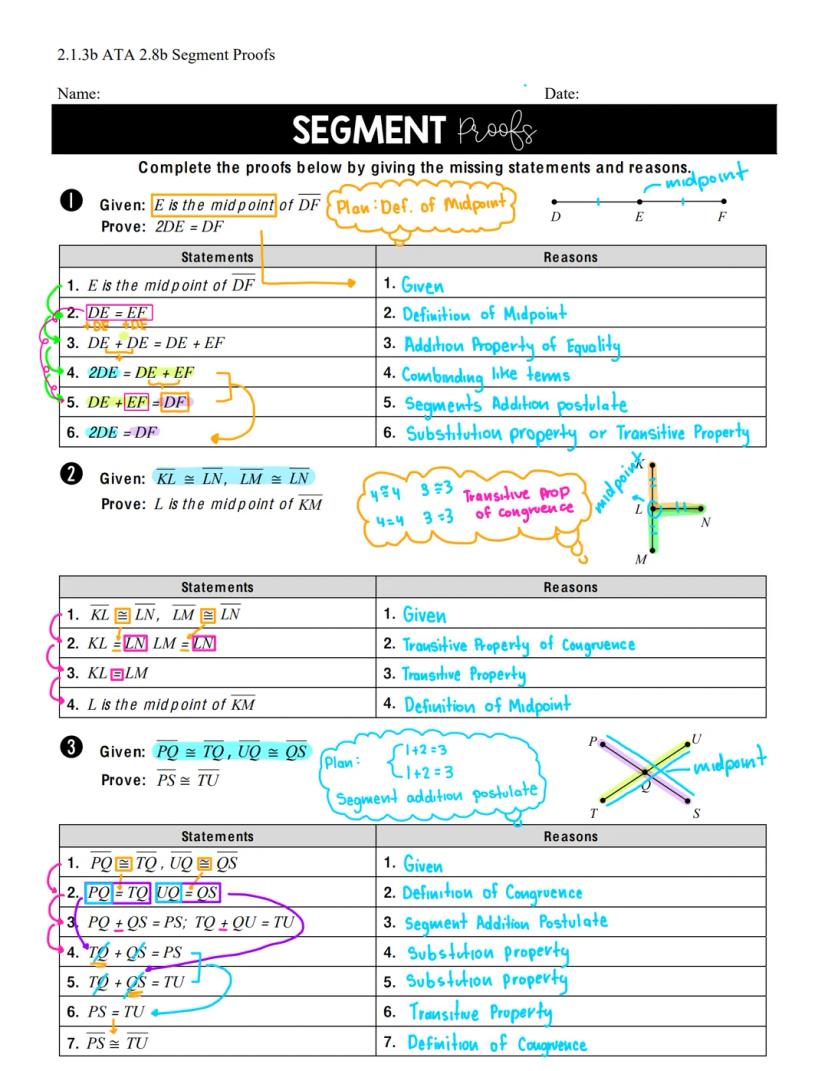 2.1.3b ATA 2.8b Segment Proofs
Name: Date:
SEGMENT Proofs
Complete the proofs below by giving the missing statements and reasons.
1 Given: E is the midpoint of DF
Prove: 2DE = DF
Plan: Def. of Midpoint
midpoint
D E F
Statements Reasons
1. E is the midpoint of DF 1. Given
2. DE = EF 2. Definition of Midpoint
+DE +DE
3. DE + DE = DE + EF 3. Addition Property of Equality
4. 2DE = DE + EF 4. Combinding like terms
5. DE + EF = DF 5. Segments Addition postulate
6. 2DE = DF 6. Substitution property or Transitive Property
2 Given: KL ≅ LN, LM ≅ LN
Prove: L is the midpoint of KM
4≅4 3≅3 Transitive Prop
4=4 3=3 of congruence
midpoint
K
L
N
M
Statements Reasons
1. KL ≅ LN, LM ≅ LN 1. Given
2. KL = LN LM = LN 2. Transitive Property of Congruence
3. KL = LM 3. Transitive Property
4. L is the midpoint of KM 4. Definition of Midpoint
3 Given: PQ ≅ TQ, UQ ≅ QS
Prove: PS ≅ TU
Plan: 1+2=3
1+2=3
Segment addition postulate
P U
midpoint
Q
T S
Statements Reasons
1. PQ ≅ TQ, UQ ≅ QS 1. Given
2. PQ = TQ UQ = QS 2. Definition of Congruence
3. PQ + QS = PS; TQ + QU = TU 3. Segment Addition Postulate
4. TQ + QS = PS 4. Substution property
5. TQ + QS = TU 5. Substution property
6. PS = TU 6. Transitive Property
7. PS ≅ TU 7. Definition of Congruence